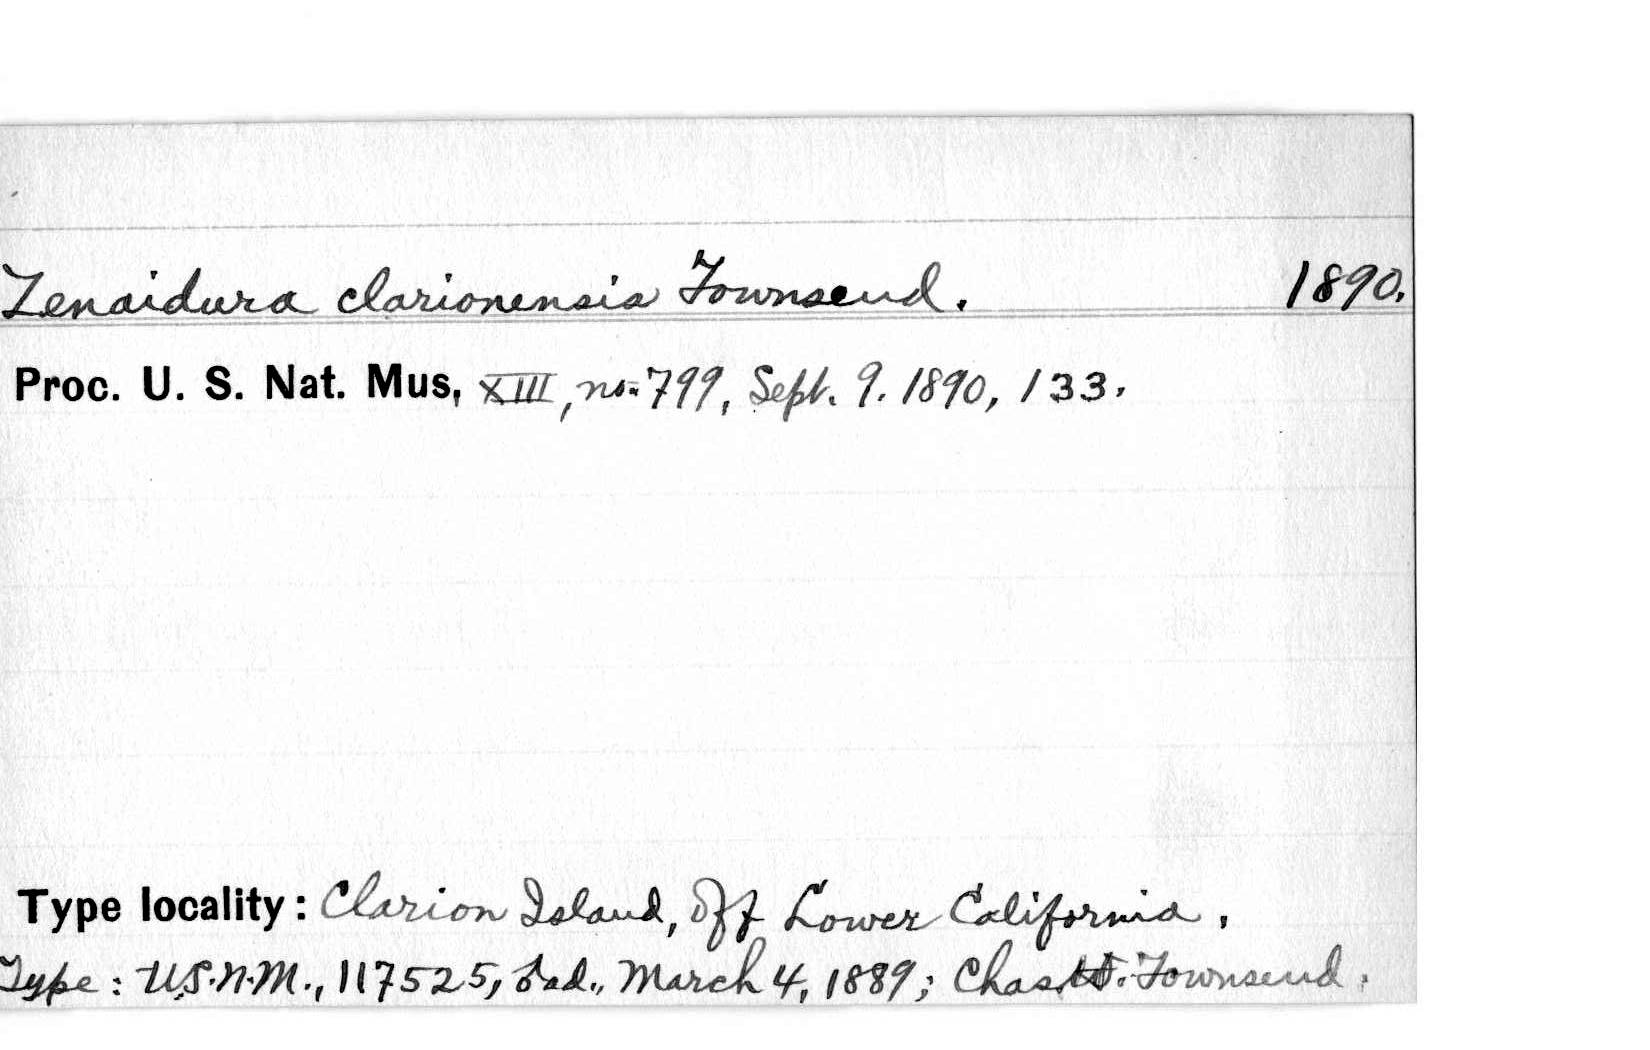 Zenaidura clarionensis Townsend. 1890.
Proc. U. S. Nat. Mus, XIII, no. 799, Sept. 9. 1890, 133.
Type locality: Clarion Island, Off Lower California.
Type: U.S.N.M., 117525, ♂ad., March 4, 1889; Chas. Townsend.